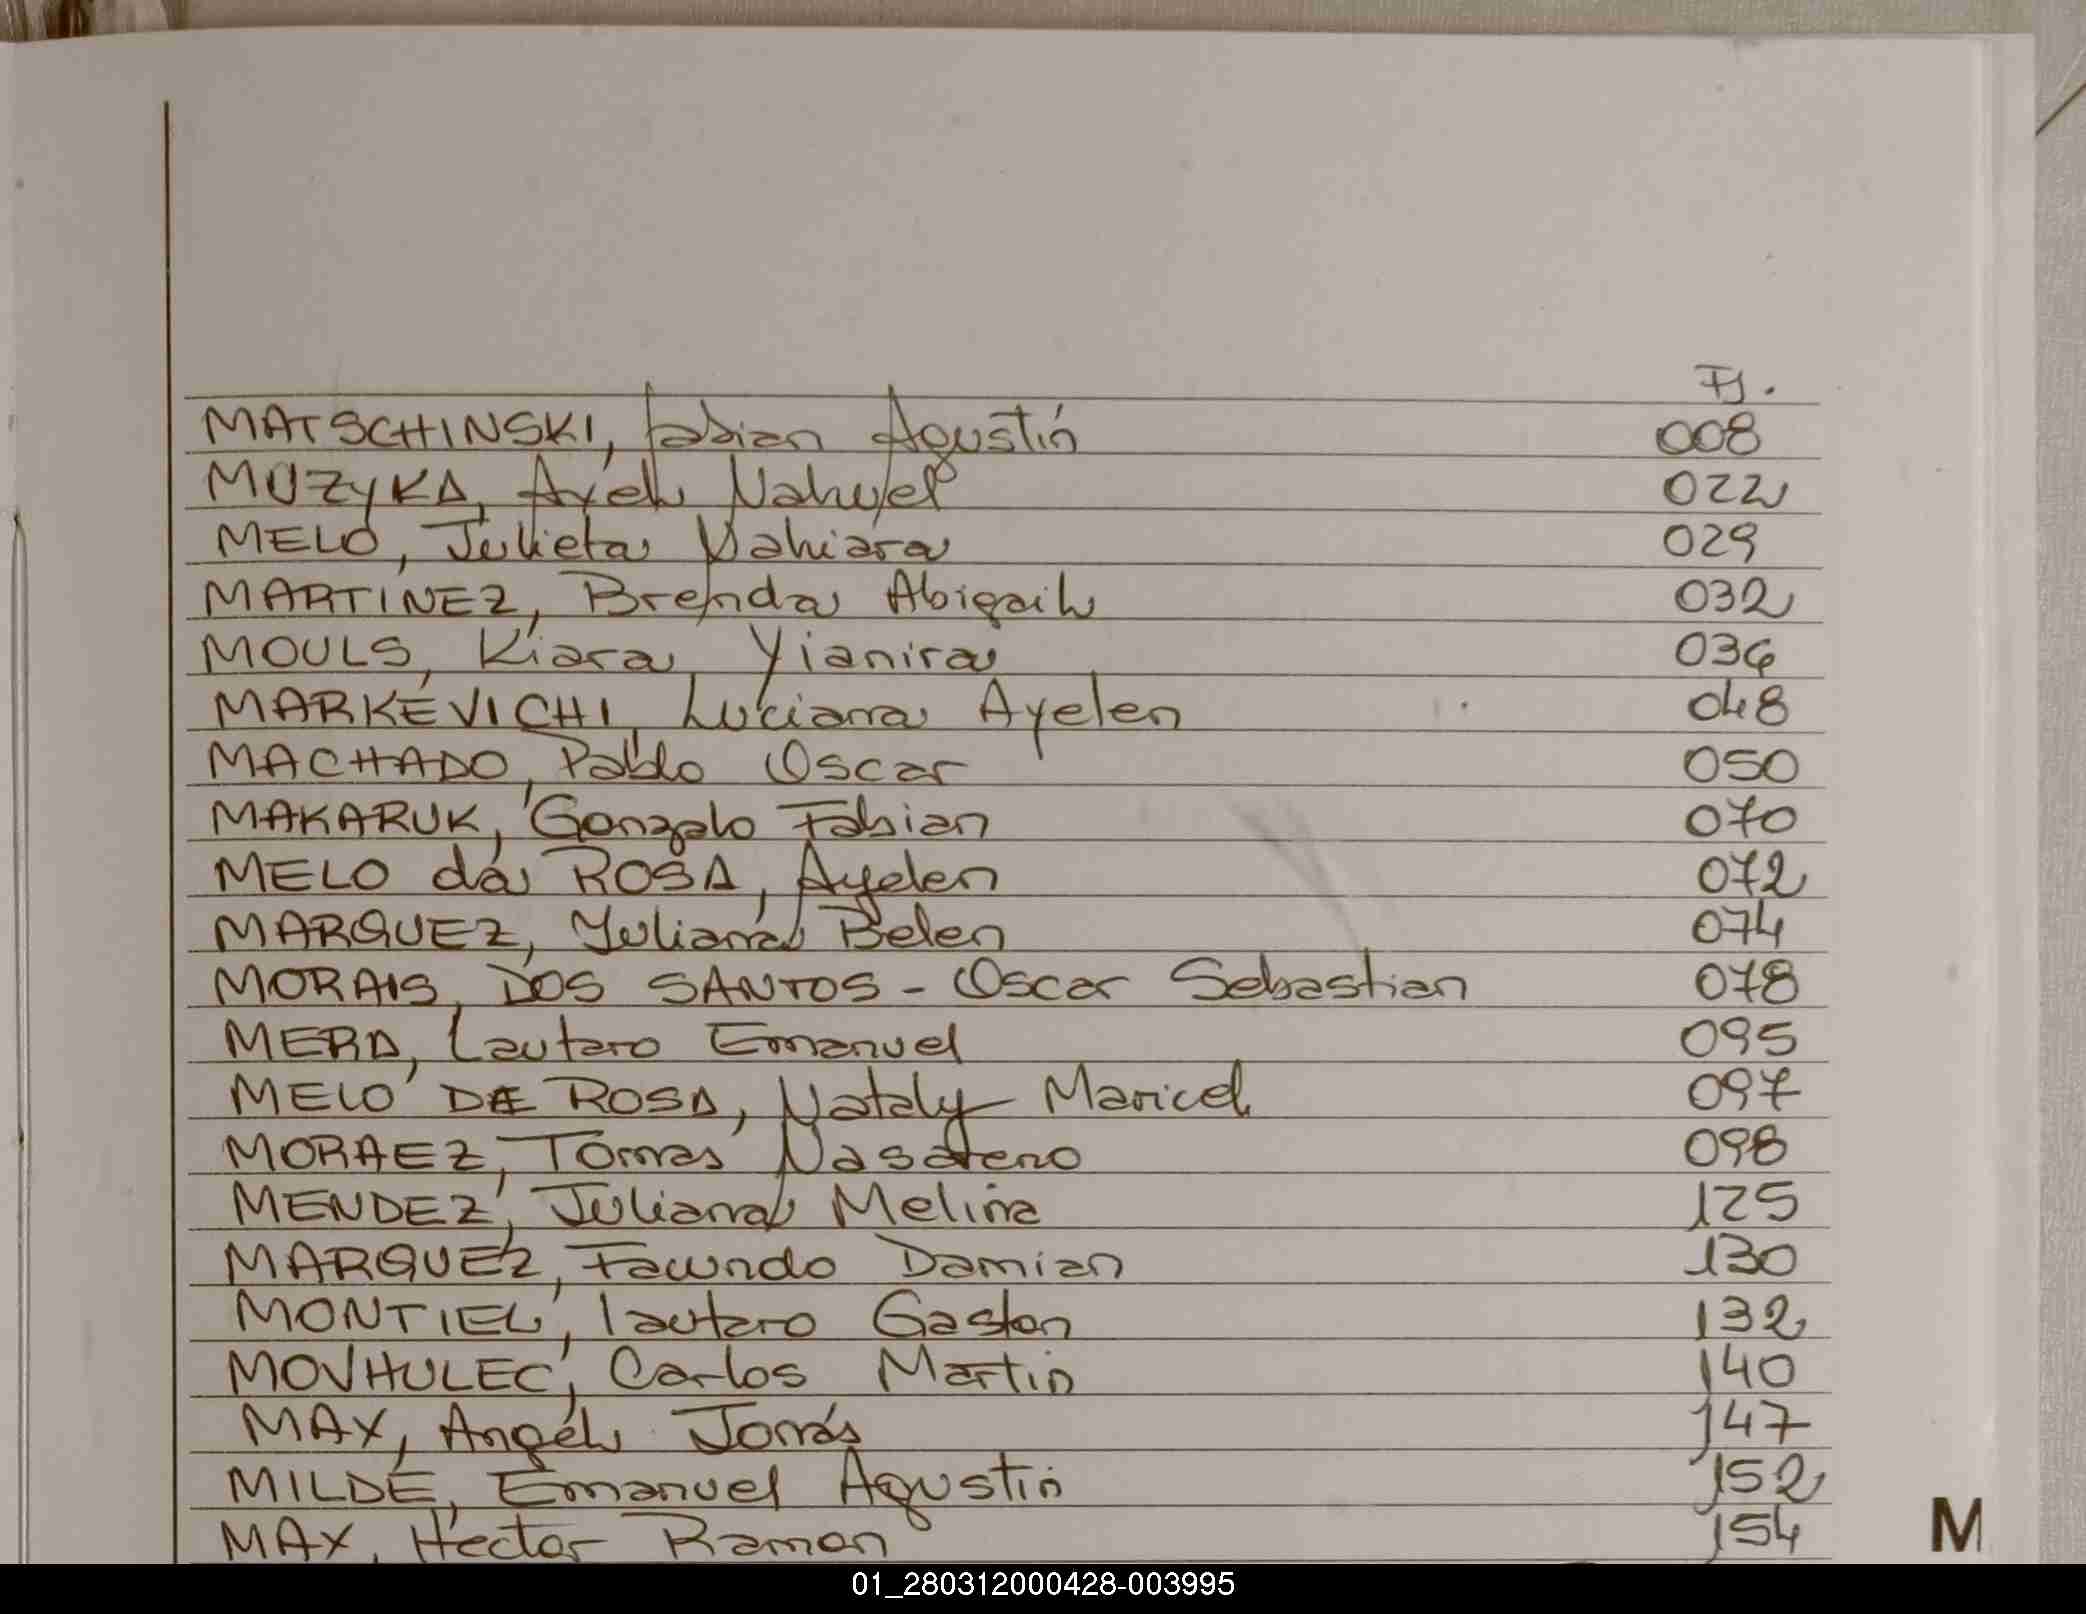 Fj.
MATSCHINSKI, fabian Agustín 008
MUZYKA, Ayelu Nahuel 022
MELO, Julieta Nahiara 029
MARTINEZ, Brenda Abigail 032
MOULS, Kiara Yianira 034
MARKEVICHI, Luciana Ayelen 048
MACHADO, Pablo Oscar 050
MAKARUK, Gonzalo Fabian 070
MELO da ROSA, Ayelen 072
MARQUEZ, Yuliana Belen 074
MORAIS, DOS SANTOS - Oscar Sebastian 078
MERA, Lautaro Emanuel 095
MELO DE ROSA, Nataly Maricel 097
MORAEZ, Tomas Nasareno 098
MENDEZ, Juliana Melina 125
MARQUEZ, Facundo Damian 130
MONTIEL, lautaro Gaston 132
MOVHULEC, Carlos Martin 140
MAX, Angel Jonás 147
MILDE, Emanuel Agustin 152
MAX, Hector Ramon 154
M
01_280312000428-003995